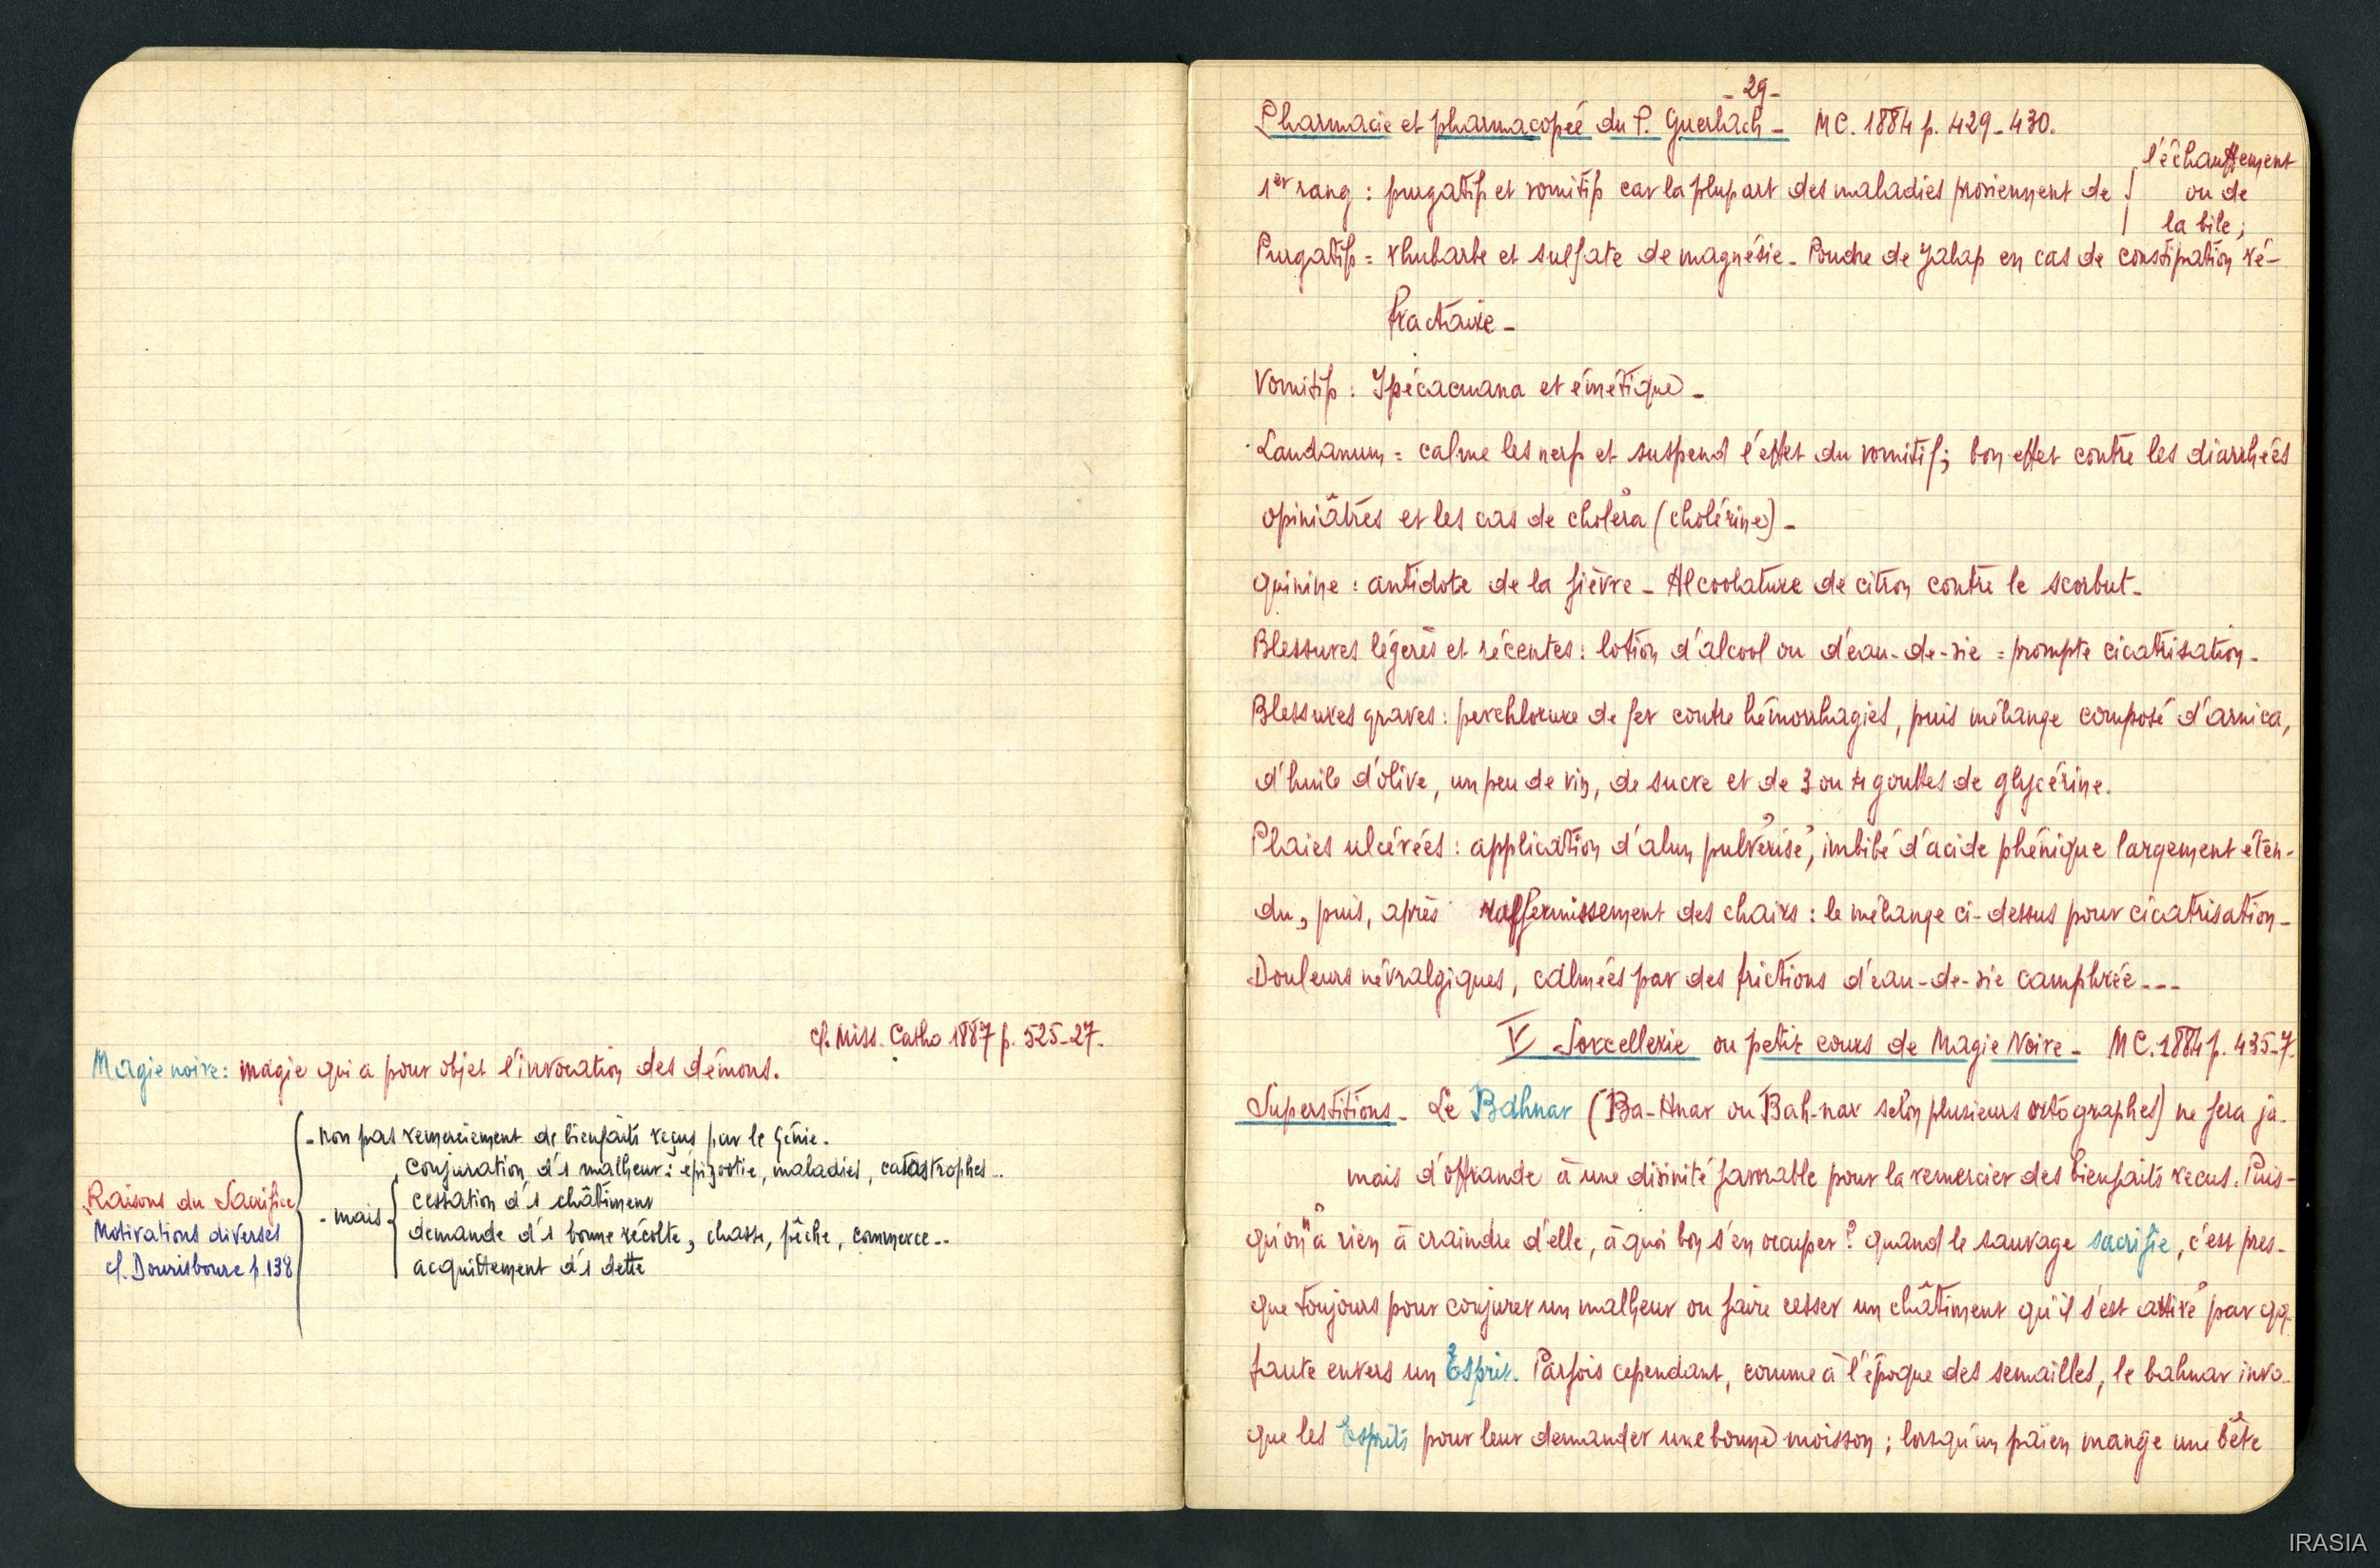 cf. Miss. Catho 1887 p. 525-27.
Magie noire : magie qui a pour objet l'invocation des démons.
- non pas remerciement de bienfaits reçus par le Génie.
conjuration d'1 malheur : épizootie, maladies, catastrophes...
Raisons du Sacrifice
cessation d'1 châtiment
- mais
Motivations diverses
demande d'1 bonne récolte, chasse, pêche, commerce...
cf. Dourisboure p. 138
acquittement d'1 dette
- 29 -
Pharmacie et pharmacopée du P. Guerlach - MC. 1884 p. 429-430.
l'échauffement
1er rang : purgatifs et vomitifs car la plupart des maladies proviennent de ou de
la bile ;
Purgatifs = rhubarbe et sulfate de magnésie - Poudre de Jalap en cas de constipation ré-
fractaire -
Vomitifs : Ipécacuana et émétique -
Laudanum = calme les nerfs et suspend l'effet du vomitif ; bon effet contre les diarrhées
opiniâtres et les cas de choléra (cholérine) -
quinine : antidote de la fièvre - Alcoolature de citron contre le scorbut -
Blessures légères et récentes : lotion d'alcool ou d'eau-de-vie = prompte cicatrisation -
Blessures graves : perchlorure de fer contre hémorrhagies, puis mélange composé d'arnica,
d'huile d'olive, un peu de vin, de sucre et de 3 ou 4 gouttes de glycérine.
Plaies ulcérées : application d'alun pulvérisé, imbibé d'acide phénique largement éten-
du, puis, après raffermissement des chairs : le mélange ci-dessus pour cicatrisation -
Douleurs névralgiques, calmées par des frictions d'eau-de-vie camphrée ---
V Sorcellerie ou petit cours de Magie Noire - MC. 1884 p. 435-7.
Superstitions - Le Bahnar (Ba-Hnar ou Bah-nar selon plusieurs ortographes) ne fera ja-
mais d'offrande à une divinité favorable pour la remercier des bienfaits recus. Puis-
qu'on "a rien à craindre d'elle, à quoi bon s'en occuper ? quand le sauvage sacrifie, c'est pres-
que toujours pour conjurer un malheur ou faire cesser un châtiment qu'il s'est attiré par qq
faute envers un Esprit. Parfois cependant, comme à l'époque des semailles, le bahnar invo-
que les Esprits pour leur demander une bonne moisson ; lorsqu'un païen mange une bête